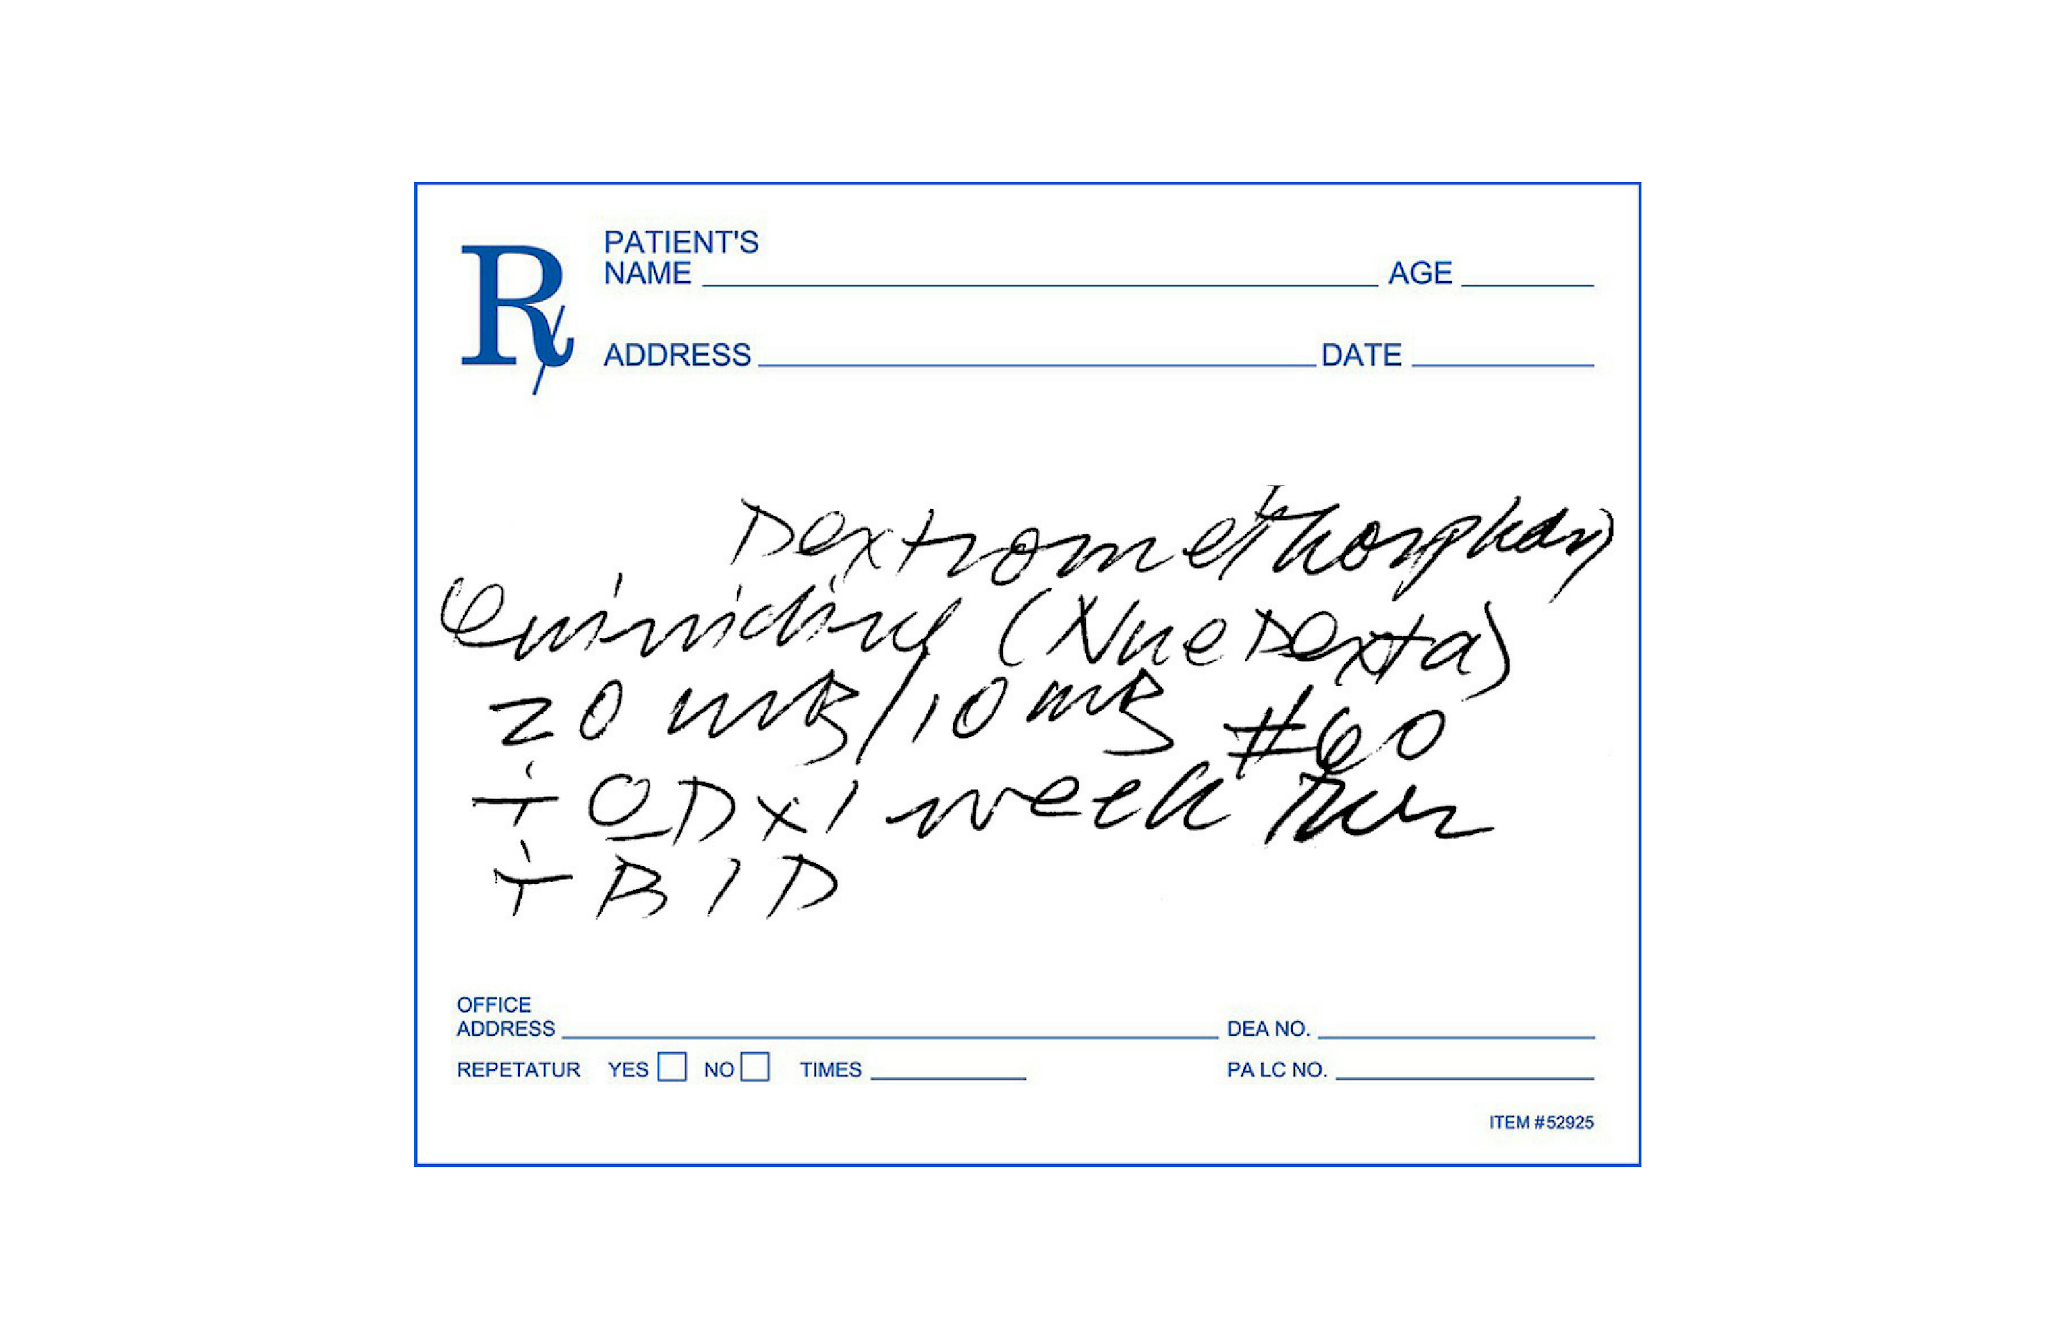 Rx
PATIENT'S
NAME AGE
ADDRESS DATE
Dextromethorphan
Quinidine (NueDexta)
20 mg/10mg #60
i OD x 1 week then
i BID
OFFICE
ADDRESS DEA NO.
REPETATUR YES NO TIMES PA LC NO.
ITEM #52925